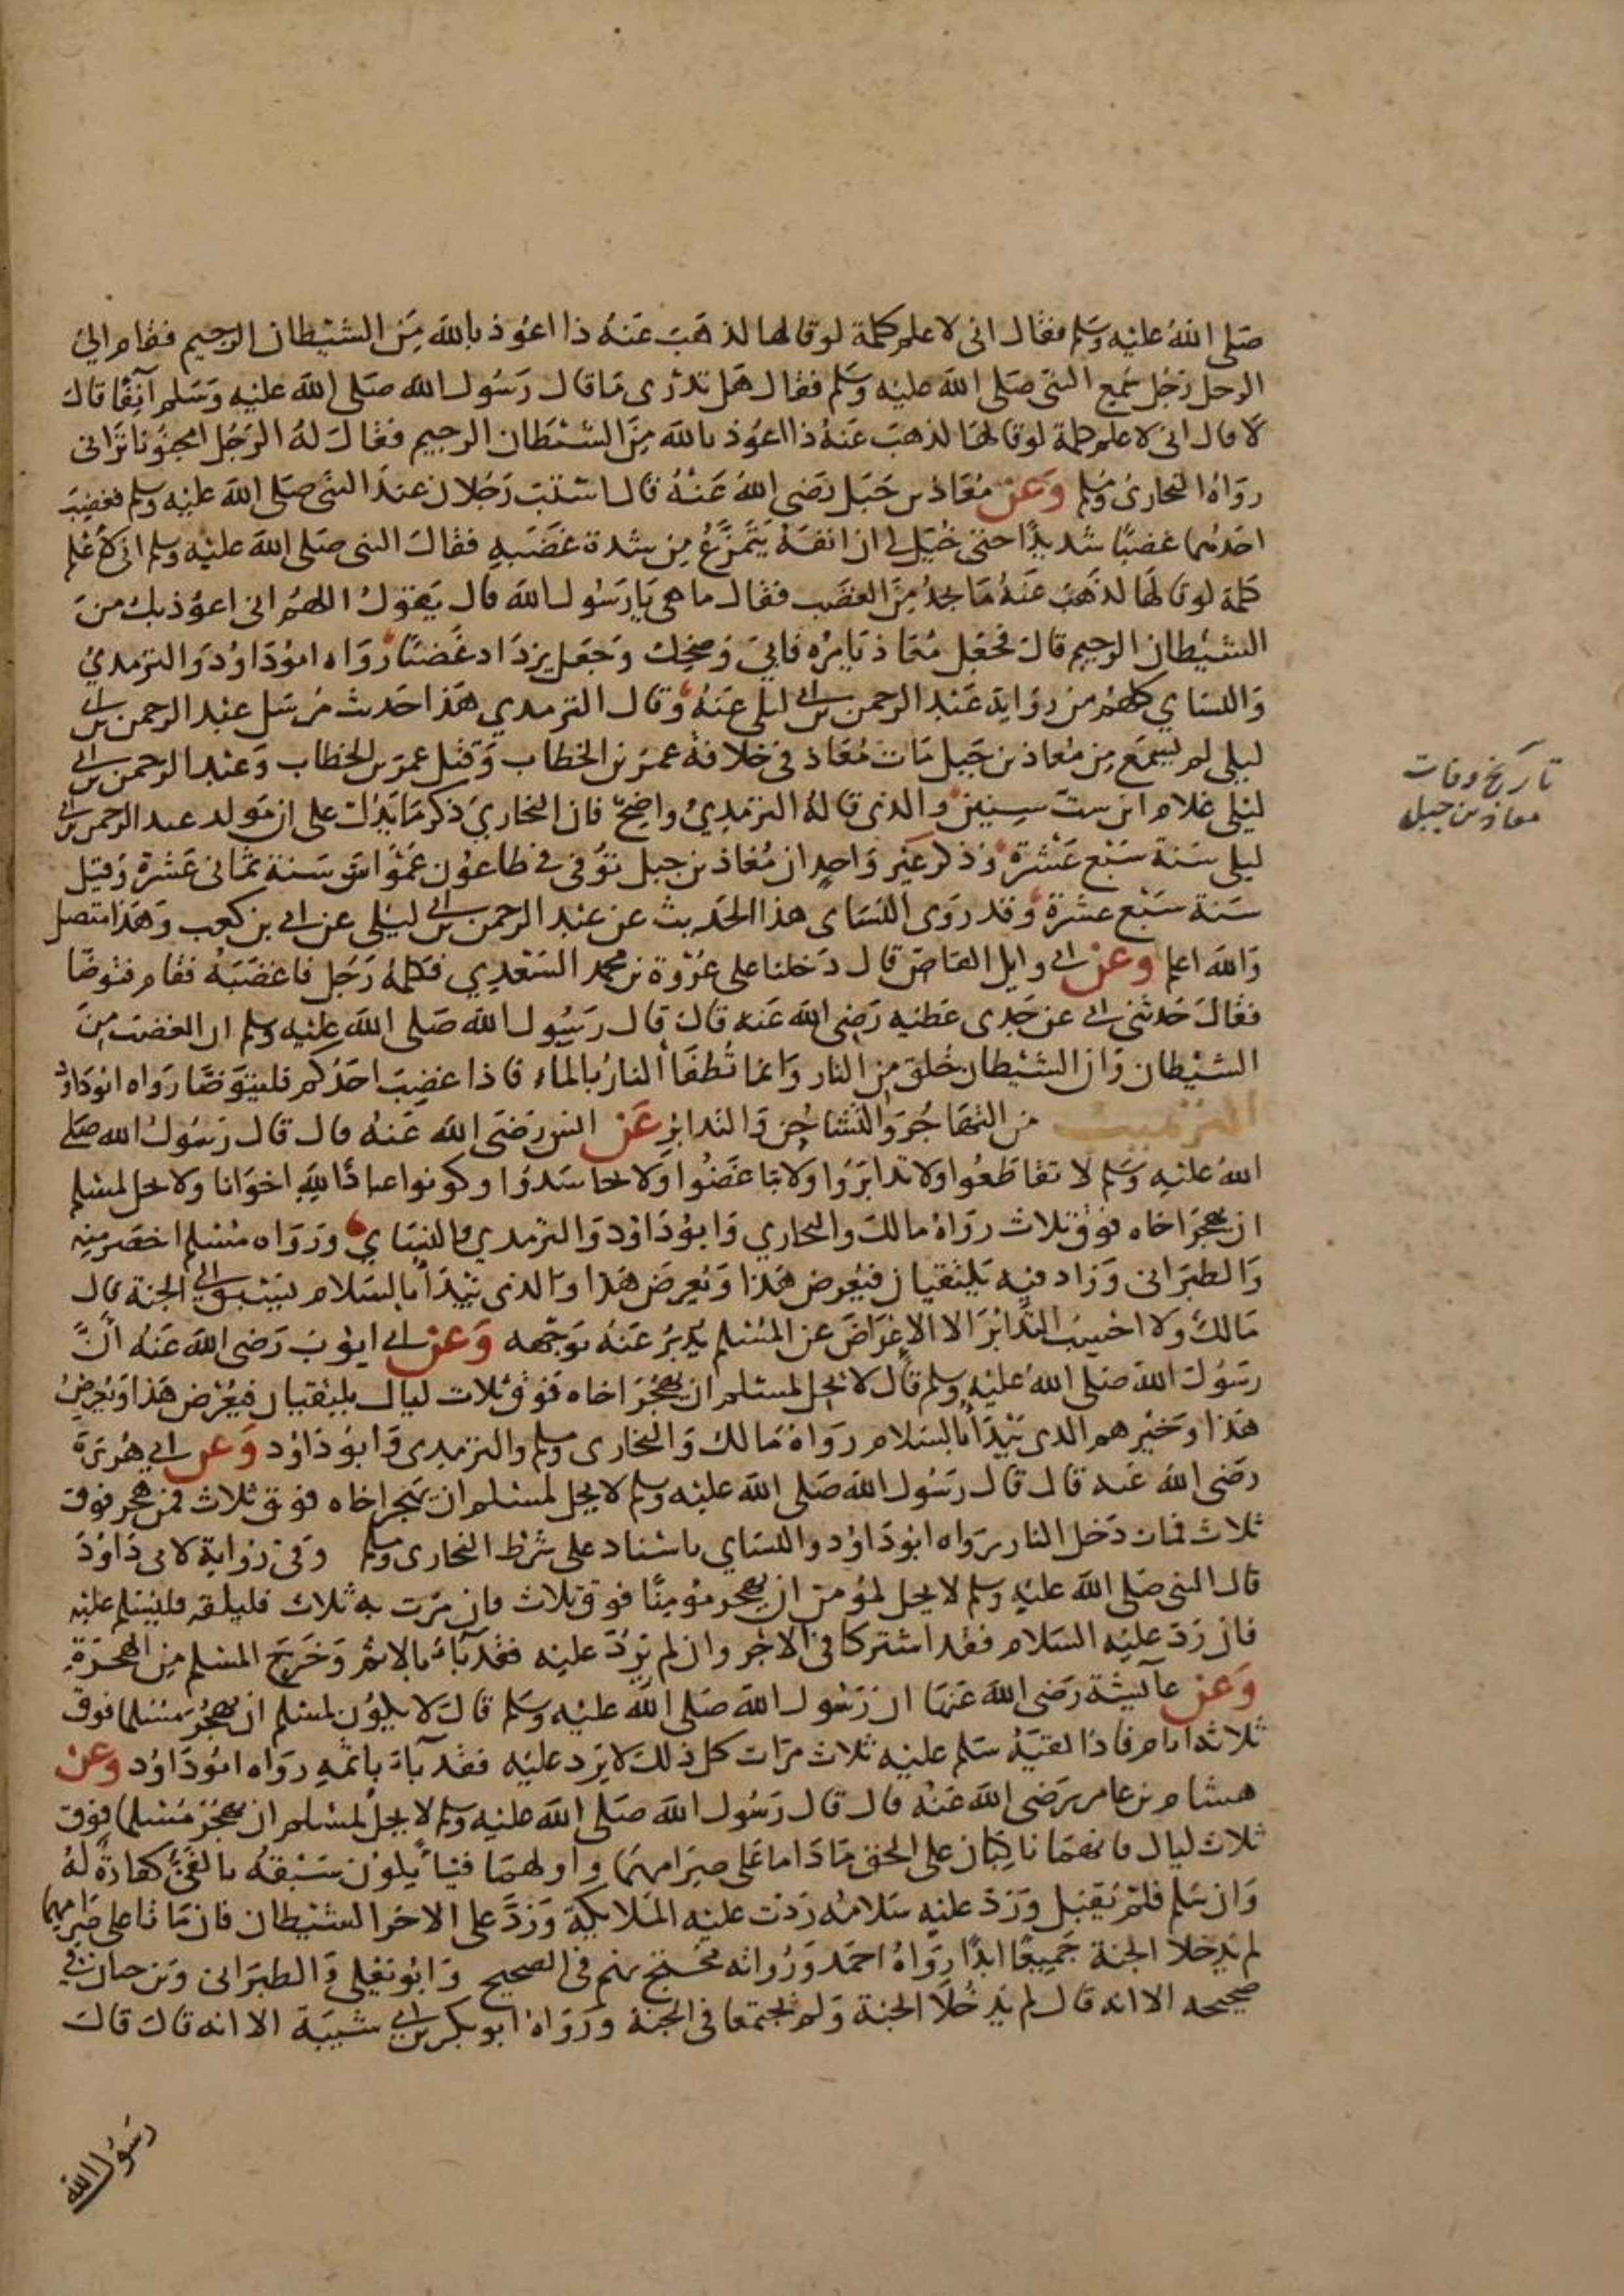 صَلى اللهُ عليْه وسَلم فقال انى لاعلم كلمة لوقالها لذهَبَ عَنهُ ذا اعوُذ بالله مِنَ الشيْطان الرجيم فقام اليَ
الرجل رَجُل سَمِع النبى صَلى الله عليْه وَسَلم فقال هَل تدْرى مَا قال رَسُول الله صَلى الله عليْه وَسَلم آنِفًا قال
لا قال انى لاعلم كلمة لوقالهَا لذهبَ عَنهُ ذا اعوُذ بالله مِنَ الشيْطان الرجيم فقال لهُ الرجُل امجنوُنا ترَانى
روَاهُ البخارى ومسلم وَعَن مُعَاذ بن جَبَل رَضى اللهُ عَنهُ قال استبّ رَجُلان عندَ النبى صَلى الله عليْه وسلم فغضِبَ
احَدهُما غضبًا شديدًا حتى خيّل لى ان انفهُ يَتمَزّعُ مِن شدة غضَبه فقال النبى صَلى الله عليْه وسلم انى لاَعْلم
كلمة لوقالهَا لذهَبَ عَنهُ مَا يجدُ مِنَ الغضَب فقال ما هى يَا رَسُول الله قال يَقولُ اللهُم انى اعوُذ بك مِنَ
الشيْطان الرجيم قال فجعَل مُعَاذ يَامرُه فابىَ وَضحك وَجَعل يزدَاد غضبًا رَوَاه ابوُدَاوُد وَالترمدي
وَالنساي كلهُم من روَاية عَبْد الرحمن بن ابي ليلى عَنهُ وقال الترمدي هَذا حَديث مُرسَل عَبْد الرحمن بن ابي
ليلى لم يسمَع مِن مُعاذ بن جَبل مَاتَ مُعَاذ فى خلافة عمَر بن الخطاب وَقتل عمَر بن الخطاب وَعَبْد الرحمن بن ابي
ليْلى غلام ابن ستّ سِنِين وَالذى قالهُ الترمِديُ واضِحٌ فان البخاريَ ذكر مَا يَدُل على ان مَولد عبد الرحمن بن ابي
ليلى سَنة سَبْع عَشرَة وَذكر غير وَاحِد ان مُعَاذ بن جبل توُفى فى طاعوُن عَمْوَاسَ سَنة ثمَانى عَشرَة وَقيل
سَنة سَبْع عشرَة وَقد روَى النسَاى هذا الحَديث عن عَبْد الرحمن بن ابي ليْلى عن ابي بن كعب وَهَذا متصل
وَالله اعلم وعن ابي وايل القاصّ قال دَخلنا على عُرْوة بن محمد السَعْدي فكلمهُ رَجُل فاغضَبَهُ فقام فتوضَا
فقال حَدثنى ابي عن جَدى عَطيه رَضى الله عَنه قال قال رَسُول الله صَلى الله عليْه وسلم ان الغضبَ مِنَ
الشيْطان وَان الشيْطان خُلق مِن النار وَانما تُطفَأُ النارُ بالماء فاذا غضِبَ احَدُكم فليتوَضا رواه ابوُدَاوُد
الترهيب من التهَاجُر وَالتشاحُن وَالتدابُر عَن انس رَضى الله عَنهُ قال قال رَسُولُ الله صَلى
اللهُ عليْه وَسَلم لا تقاطعُوا ولا تدابَرُوا ولا تباغضُوا ولا تحاسَدُوا وكونوا عبادًا للهِ اخوَانا ولا يحل لمسْلم
ان يهجُرَ اخاه فوْق ثلاث روَاهُ مالك والبخاري وَابوُ دَاوُد وَالترمدي وَالنسَاي وَرَوَاه مسْلم اخصَر منه
وَالطبَرَانى وَزاد فيه يَلتقيان فيُعْرض هَذا وَيُعرض هَذا وَالذى يَبْدَأُ بالسَلام يَسْبق الى الجنة قال
مَالك وَلا احْسِبُ التدابُرَ الا الاعْرَاضَ عن المُسْلم يُدبرُ عَنهُ بوَجْهه وَعن ابي ايوُبَ رَضى الله عَنهُ انَّ
رسُولَ الله صَلى اللهُ عليْه وسلم قال لا يحل لمسْلم ان يهجُرَ اخاه فوْق ثلاث ليال يلتقيان فيُعْرض هَذا وَيُعرضُ
هَذا وَخيْرهم الدى يَبْدَأُ بالسَلام روَاهُ مَالك وَالبخارى ومسلم وَالترمدى وَابوُ دَاوُد وَعن ابي هُرَيرَة
رضَى اللهُ عَنه قال قال رَسُول الله صَلى الله عليْه وسلم لا يحِل لمسْلم ان يَهجُر اخاه فوْق ثلاث فمن هجر فوق
ثلاث فمات دَخل النار رَوَاه ابوُ دَاوُد والنسَاي باسْناد على شَرْط البخارى ومسلم وَفى رَوَاية لابى دَاوُدَ
قال النبى صَلى الله عليْه وسلم لا يحل لمؤمن ان يهجر مؤمِنًا فوق ثلاث فان مَرّت به ثلاث فليلقه فليُسَلم عليْه
فان رَدّ عليْه السَلام فقد اشتركا فى الاجْر وان لم يَرُدّ عليه فقد بَآءَ بالاثم وَخرَجَ المسْلم مِنَ الهجرَةِ
وَعن عآئشة رَضى الله عَنهَا ان رَسُول الله صَلى الله عليْه وَسَلم قال لا يكوُن لمسْلم ان يهجُرَ مسْلما فوق
ثلاثة ايام فاذا لقيَهُ سَلم عليْه ثلاث مَرّات كل ذلك لا يَرد عليْه فقد بآءَ باثمهِ روَاه ابوُ دَاوُد وعن
هشام بن عامر رَضى الله عَنهُ قال قال رَسُول الله صَلى الله عليْه وسلم لا يحل لمسْلم ان يَهجُرَ مُسْلما فوق
ثلاث ليال فانهمَا ناكبَان على الحق مَا دَاما عَلى صرَامهمَا واولهمَا فيئا يكوُن سَبْقهُ بالفئ كفارةً لهُ
وَان سَلم فلم يَقبَل وَرَدّ عليْهِ سَلامَهُ رَدّت عليْه المَلايكة وَرَدَّ على الاخر الشيْطان فان مَاتا على صَرامهما
لم يَدخلا الجنة جَميعًا ابدًا رَوَاهُ احمَد وَرُوَاته محْتجّ بهم فى الصحيح وَابوُ يَعْلى وَالطبَرَانى وَبن حبان في
صحيحه الا انه قال لم يَدْخلا الجنة وَلم يجتمعا فى الجنة وَرَوَاهُ ابو بكر بن ابي شيبَة الا انه قال قال
رَسُول الله
تاريخ وفات
معاذ بن جبل